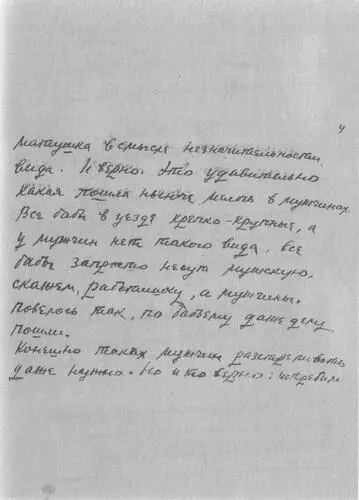 4
матушка в смысле незначительности
вида. И верно. Это удивительно
какая пошла нынче мелочь в мужчинах.
Все бабы в уезде крепко-крупные, а
у мужчин нет такого вида. Все
бабы запросто несут мужскую,
скажем, работишку, а мужчины.
Повелось так, по бабьему даже делу
пошли.
Конешно таких мужчин расстреливать
даже нужно. Но и то верно: истребим